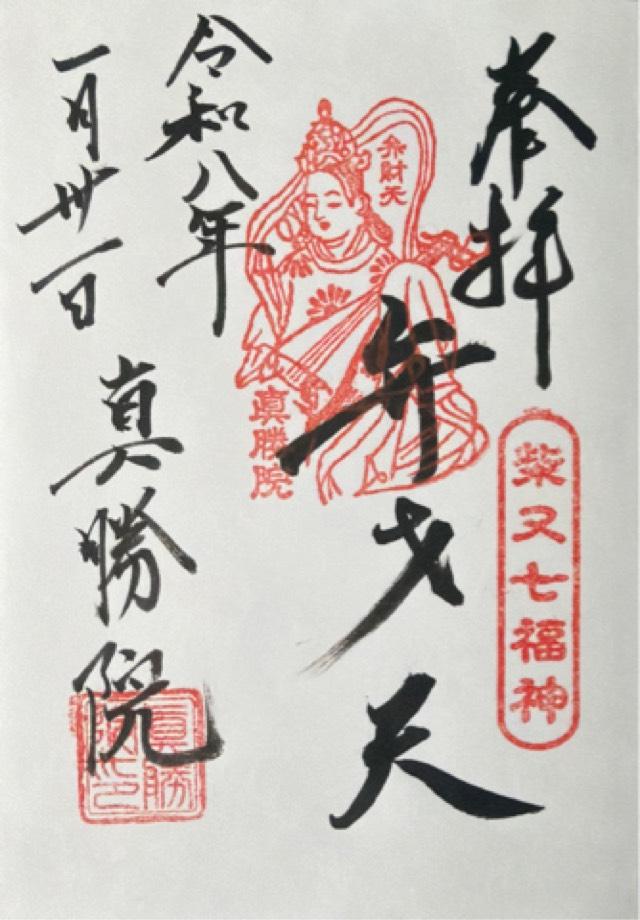 奉拝
柴又七福神
弁才天
弁財天
真勝院
令和八年
一月卅一日
真勝院
真勝院印